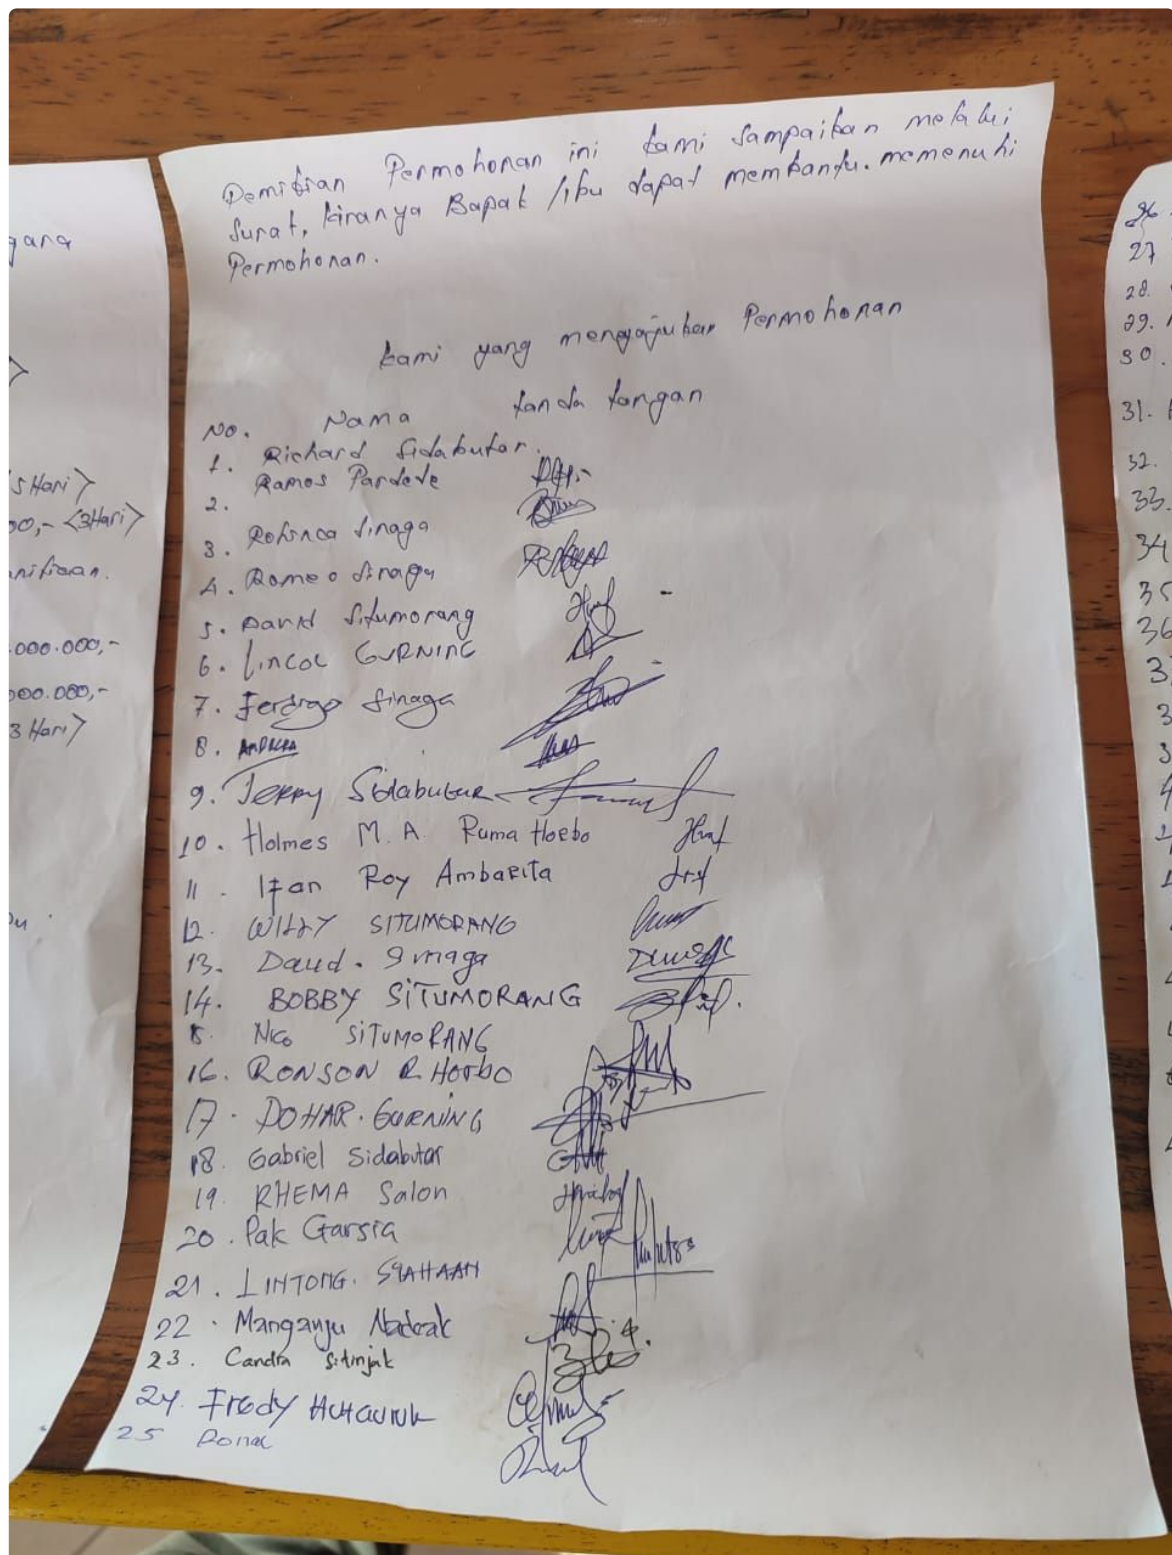 gana
5 Hari>
00,- <3Hari>
.000.000,-
000.000,-
3 Hari>
Demikian Permohonan ini kami sampaikan melalui
Surat, kiranya Bapak /ibu dapat membantu. memenuhi
Permohonan.
kami yang mengajukan Permohonan
No. Nama tanda tangan
1. Richard Sidabutar.
2. Ramos Pardede
3. Rohinca Sinaga
4. Romeo Sinaga
5. David Situmorang
6. Lincol GURNING
7. Ferdigo Sinaga
8.
9. Jerry Sidabutar
10. Holmes M. A. Ruma Horbo
11. Ifan Roy Ambarita
12. WILLY SITUMORANG
13. Daud. Sinaga
14. BOBBY SITUMORANG
15. Nico SITUMORANG
16. RONSON R. Horbo
17. DOHAR. GURNING
18. Gabriel Sidabutar
19. RHEMA Salon
20. Pak Garsia
21. LINTONG. SIAHAAN
22. Manganju Nadeak
23. Candra Sitinjak
24. Fredy Hutauruk
25
26.
27
28.
29.
30.
31.
32.
33.
34
35
36